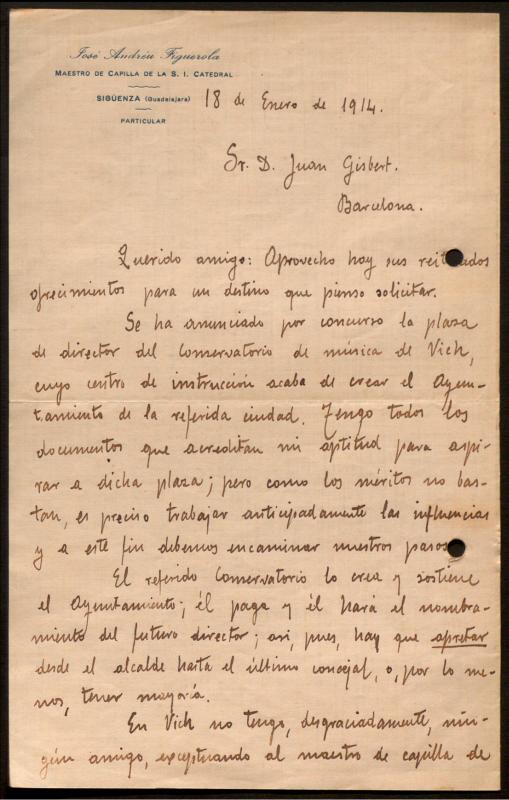 José Andréu Figuerola
MAESTRO DE CAPILLA DE LA S. I. CATEDRAL
SIGÜENZA (Guadalajara)
PARTICULAR
18 de Enero de 1914.
Sr. D. Juan Gisbert.
Barcelona.
Querido amigo: Aprovecho hoy sus reiterados
ofrecimientos para un destino que pienso solicitar.
Se ha anunciado por concurso la plaza
de director del Conservatorio de música de Vich,
cuyo centro de instrucción acaba de crear el Ayun-
tamiento de la referida ciudad. Tengo todos los
documentos que acreditan mi aptitud para aspi-
rar a dicha plaza; pero como los méritos no bas-
tan, es preciso trabajar anticipadamente las influencias
y a este fin debemos encaminar nuestros pasos.
El referido Conservatorio lo crea y sostiene
el Ayuntamiento; él paga y él hará el nombra-
miento del futuro director; así, pues, hay que apretar
desde el alcalde hasta el último concejal, o, por lo me-
nos, tener mayoría.
En Vich no tengo, desgraciadamente, nin-
gún amigo, exceptuando al maestro de capilla de